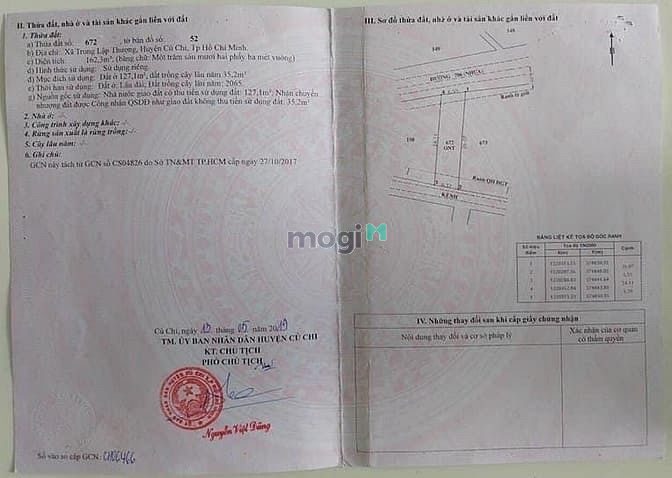 II. Thửa đất, nhà ở và tài sản khác gắn liền với đất
1. Thửa đất:
a) Thửa đất số: 672 , tờ bản đồ số: 52
b) Địa chỉ: Xã Trung Lập Thượng, Huyện Củ Chi, Tp Hồ Chí Minh.
c) Diện tích: 162,3m², (bằng chữ: Một trăm sáu mươi hai phẩy ba mét vuông)
d) Hình thức sử dụng: Sử dụng riêng.
đ) Mục đích sử dụng: Đất ở 127,1m², Đất trồng cây lâu năm 35,2m²
e) Thời hạn sử dụng: Đất ở: Lâu dài; Đất trồng cây lâu năm: 2065.
g) Nguồn gốc sử dụng: Nhà nước giao đất có thu tiền sử dụng đất: 127,1m², Nhận chuyển
nhượng đất được Công nhận QSDĐ như giao đất không thu tiền sử dụng đất: 35,2m²
2. Nhà ở: -/-
3. Công trình xây dựng khác: -/-
4. Rừng sản xuất là rừng trồng: -/-
5. Cây lâu năm: -/-
6. Ghi chú:
GCN này tách từ GCN số CS04826 do Sở TN&MT TP.HCM cấp ngày 27/10/2017
Củ Chi, ngày 13 tháng 05 năm 2019
TM. ỦY BAN NHÂN DÂN HUYỆN CỦ CHI
KT. CHỦ TỊCH
PHÓ CHỦ TỊCH
Nguyễn Việt Dũng
Số vào sổ cấp GCN:
mogi
III. Sơ đồ thửa đất, nhà ở và tài sản khác gắn liền với đất
348
349
ĐƯỜNG 706 (NHỰA)
Ranh lộ giới
672
ONT
673
Ranh QH ĐGT
KÊNH
BẢNG LIỆT KÊ TỌA ĐỘ GÓC RANH
Số hiệu điểm
Tọa độ VN2000
X(m) Y(m)
Cạnh
1
2
3
4
1
IV. Những thay đổi sau khi cấp giấy chứng nhận
Nội dung thay đổi và cơ sở pháp lý
Xác nhận của cơ quan
có thẩm quyền